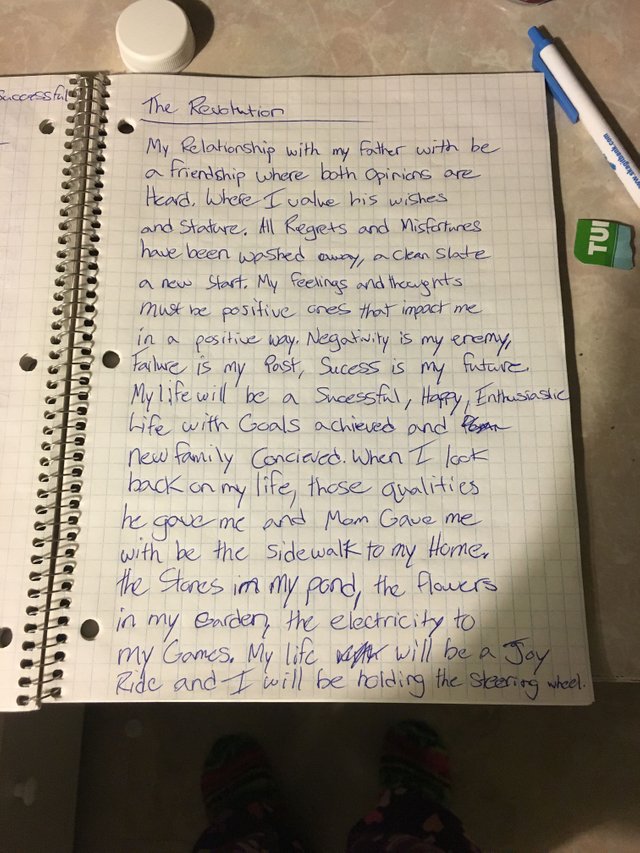 Successful
The Revolution
My Relationship with my father with be
a friendship where both opinions are
Heard. Where I value his wishes
and Stature. All Regrets and Misfortunes
have been washed away, a clean Slate
a new Start. My feelings and thoughts
must be positive ones that impact me
in a positive way. Negativity is my enemy,
Failure is my Past, Sucess is my future.
My life will be a Sucessful, Happy, Enthusiastic
Life with Goals achieved and
new family Concieved. When I look
back on my life, those qualities
he gave me and Mom Gave me
with be the sidewalk to my Home,
the Stones in my pond, the flowers
in my Garden, the electricity to
my Games. My life will be a Joy
Ride and I will be holding the steering wheel.
TUI